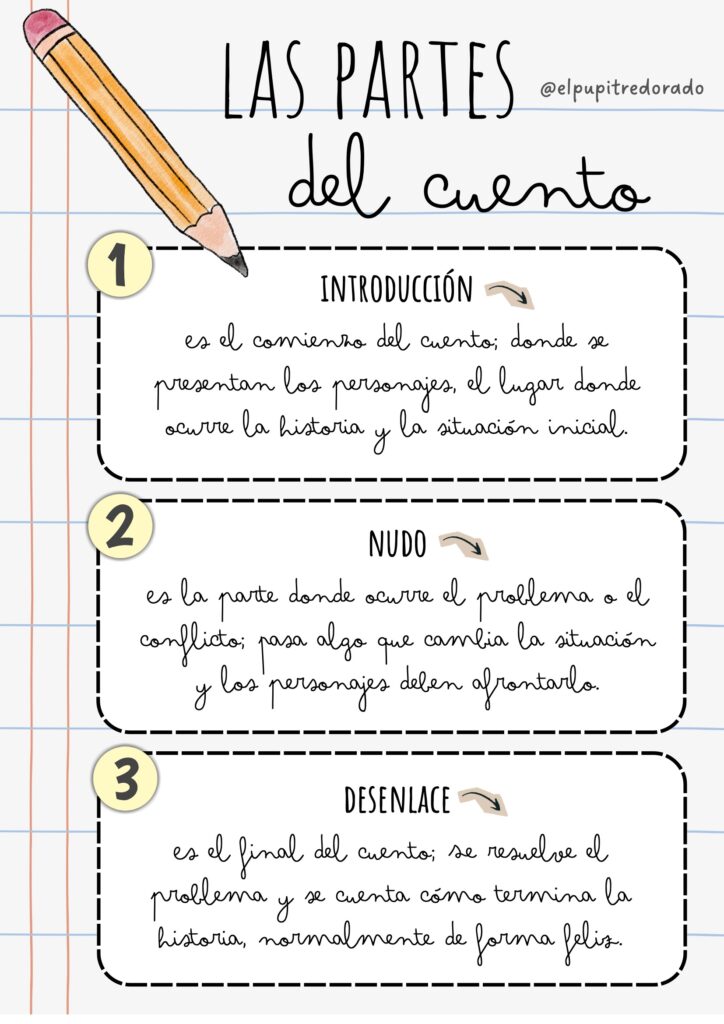 LAS PARTES
@elpupitredorado
del cuento
1
INTRODUCCIÓN
es el comienzo del cuento; donde se
presentan los personajes, el lugar donde
ocurre la historia y la situación inicial.
2
NUDO
es la parte donde ocurre el problema o el
conflicto; pasa algo que cambia la situación
y los personajes deben afrontarlo.
3
DESENLACE
es el final del cuento; se resuelve el
problema y se cuenta cómo termina la
historia, normalmente de forma feliz.